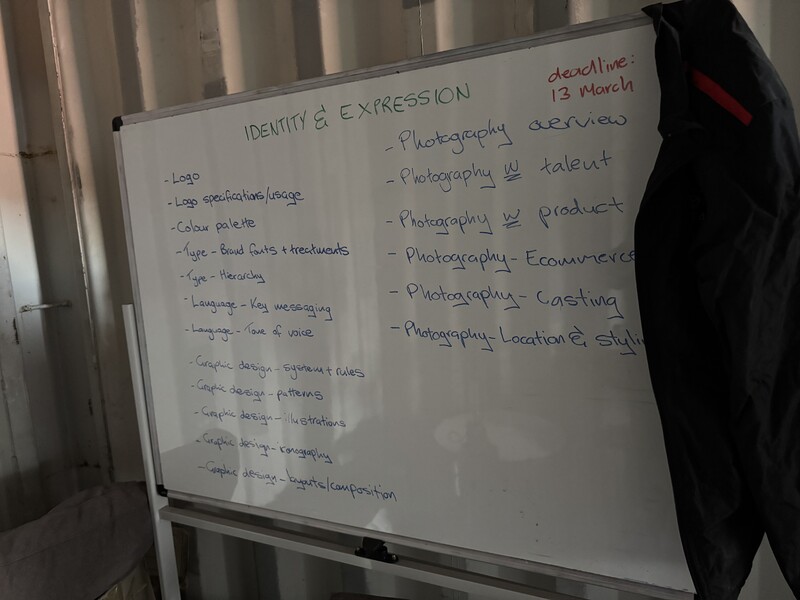 IDENTITY & EXPRESSION
deadline:
13 March
- Logo
- Logo specifications/usage
- Colour palette
- Type - Brand fonts + treatments
- Type - Hierarchy
- Language - Key messaging
- Language - Tone of voice
- Graphic design - system + rules
- Graphic design - patterns
- Graphic design - illustrations
- Graphic design - iconography
- Graphic design - layouts/composition
- Photography overview
- Photography w talent
- Photography w product
- Photography - Ecommerce
- Photography - Casting
- Photography - Location &